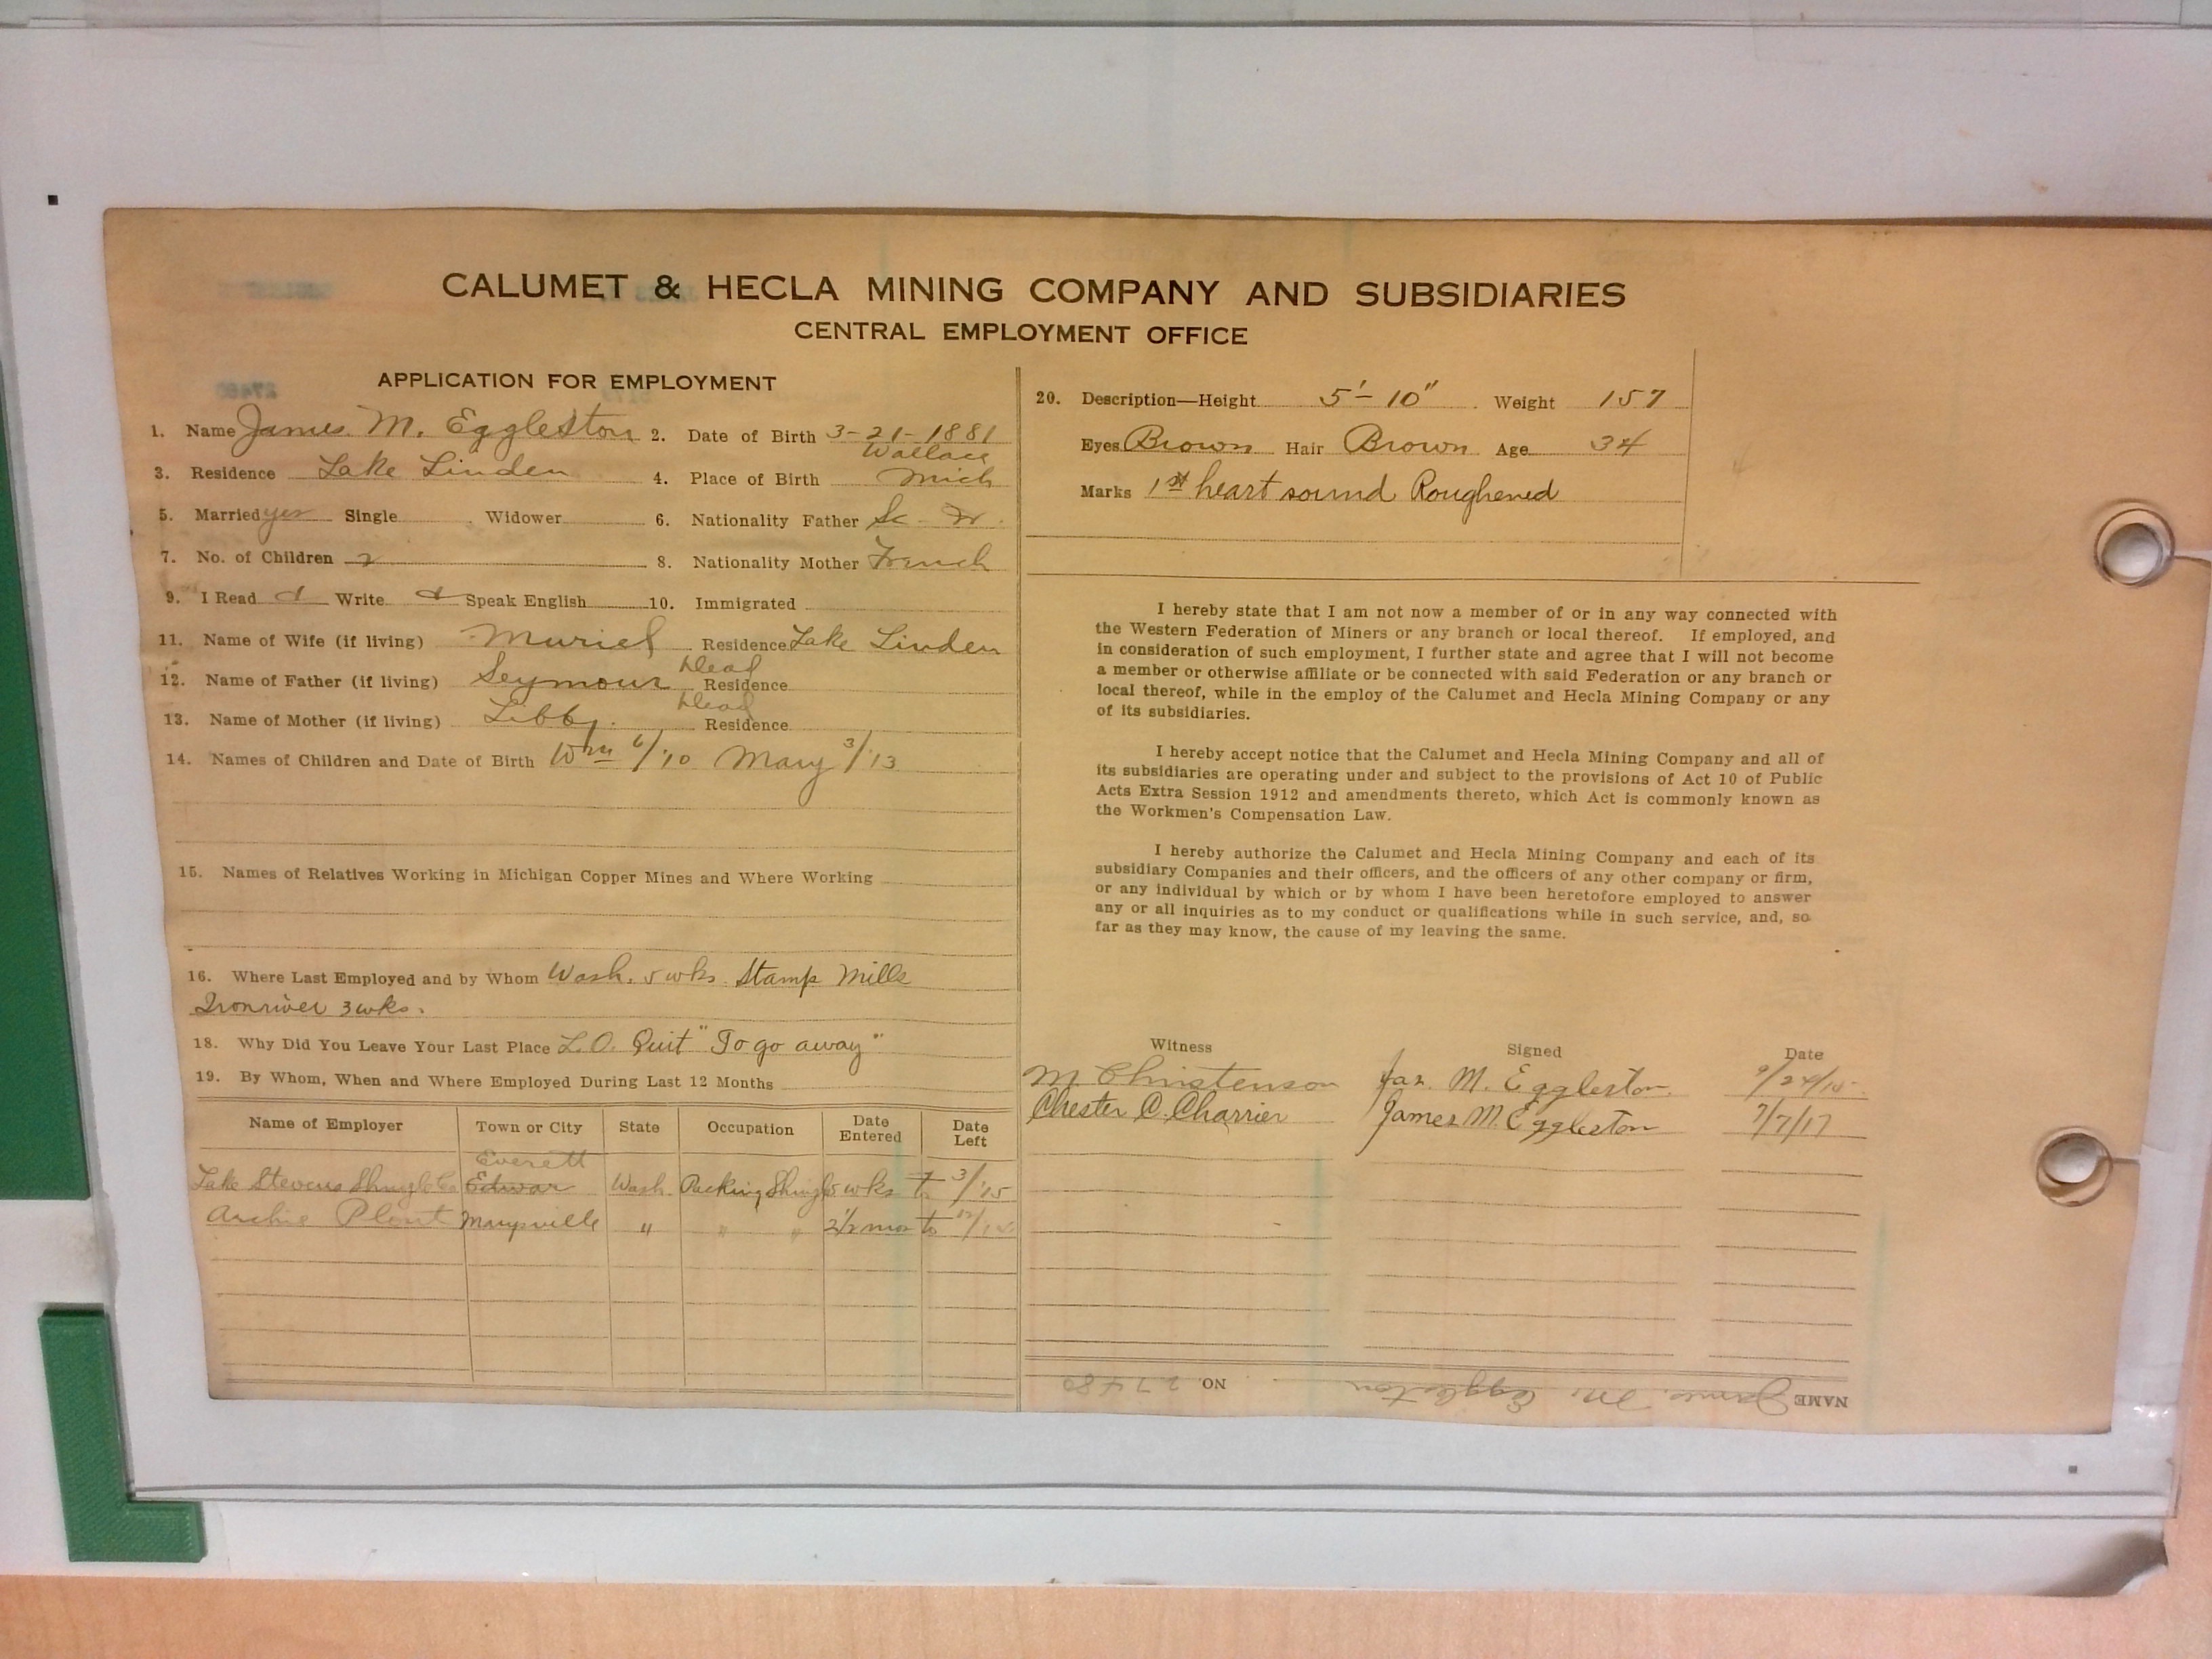 CALUMET & HECLA MINING COMPANY AND SUBSIDIARIES
CENTRAL EMPLOYMENT OFFICE
APPLICATION FOR EMPLOYMENT
1. Name James M. Eggleston 2. Date of Birth 3-21-1881
Wallace
3. Residence Lake Linden 4. Place of Birth Mich
5. Married yes Single Widower 6. Nationality Father Sc
7. No. of Children 2 8. Nationality Mother French
9. I Read Write Speak English 10. Immigrated
11. Name of Wife (if living) Muriel Residence Lake Linden
12. Name of Father (if living) Seymour Residence Dead
13. Name of Mother (if living) Libby. Residence Dead
14. Names of Children and Date of Birth Wm 6/'10 Mary 3/'13
15. Names of Relatives Working in Michigan Copper Mines and Where Working
16. Where Last Employed and by Whom Wash. 5 wks. Stamp Mills
Ironriver 3 wks.
18. Why Did You Leave Your Last Place L.O. Quit "To go away"
19. By Whom, When and Where Employed During Last 12 Months
Name of Employer Town or City State Occupation Date Entered Date Left
Everett
Lake Stevens Shingle Co Edwar Wash. Packing Shingl 5 wks to 3/'15
Archie Plout Marysville " " " 2 1/2 mos to 12/14
20. Description—Height 5'-10" Weight 157
Eyes Brown Hair Brown Age 34
Marks 1st heart sound Roughened
I hereby state that I am not now a member of or in any way connected with
the Western Federation of Miners or any branch or local thereof. If employed, and
in consideration of such employment, I further state and agree that I will not become
a member or otherwise affiliate or be connected with said Federation or any branch or
local thereof, while in the employ of the Calumet and Hecla Mining Company or any
of its subsidiaries.
I hereby accept notice that the Calumet and Hecla Mining Company and all of
its subsidiaries are operating under and subject to the provisions of Act 10 of Public
Acts Extra Session 1912 and amendments thereto, which Act is commonly known as
the Workmen's Compensation Law.
I hereby authorize the Calumet and Hecla Mining Company and each of its
subsidiary Companies and their officers, and the officers of any other company or firm,
or any individual by which or by whom I have been heretofore employed to answer
any or all inquiries as to my conduct or qualifications while in such service, and, so
far as they may know, the cause of my leaving the same.
Witness Signed Date
M Christenson Jas. M. Eggleston. 9/24/15
Chester C. Charrier James M. Eggleston 7/7/17
NAME James M. Eggleston NO. 27480